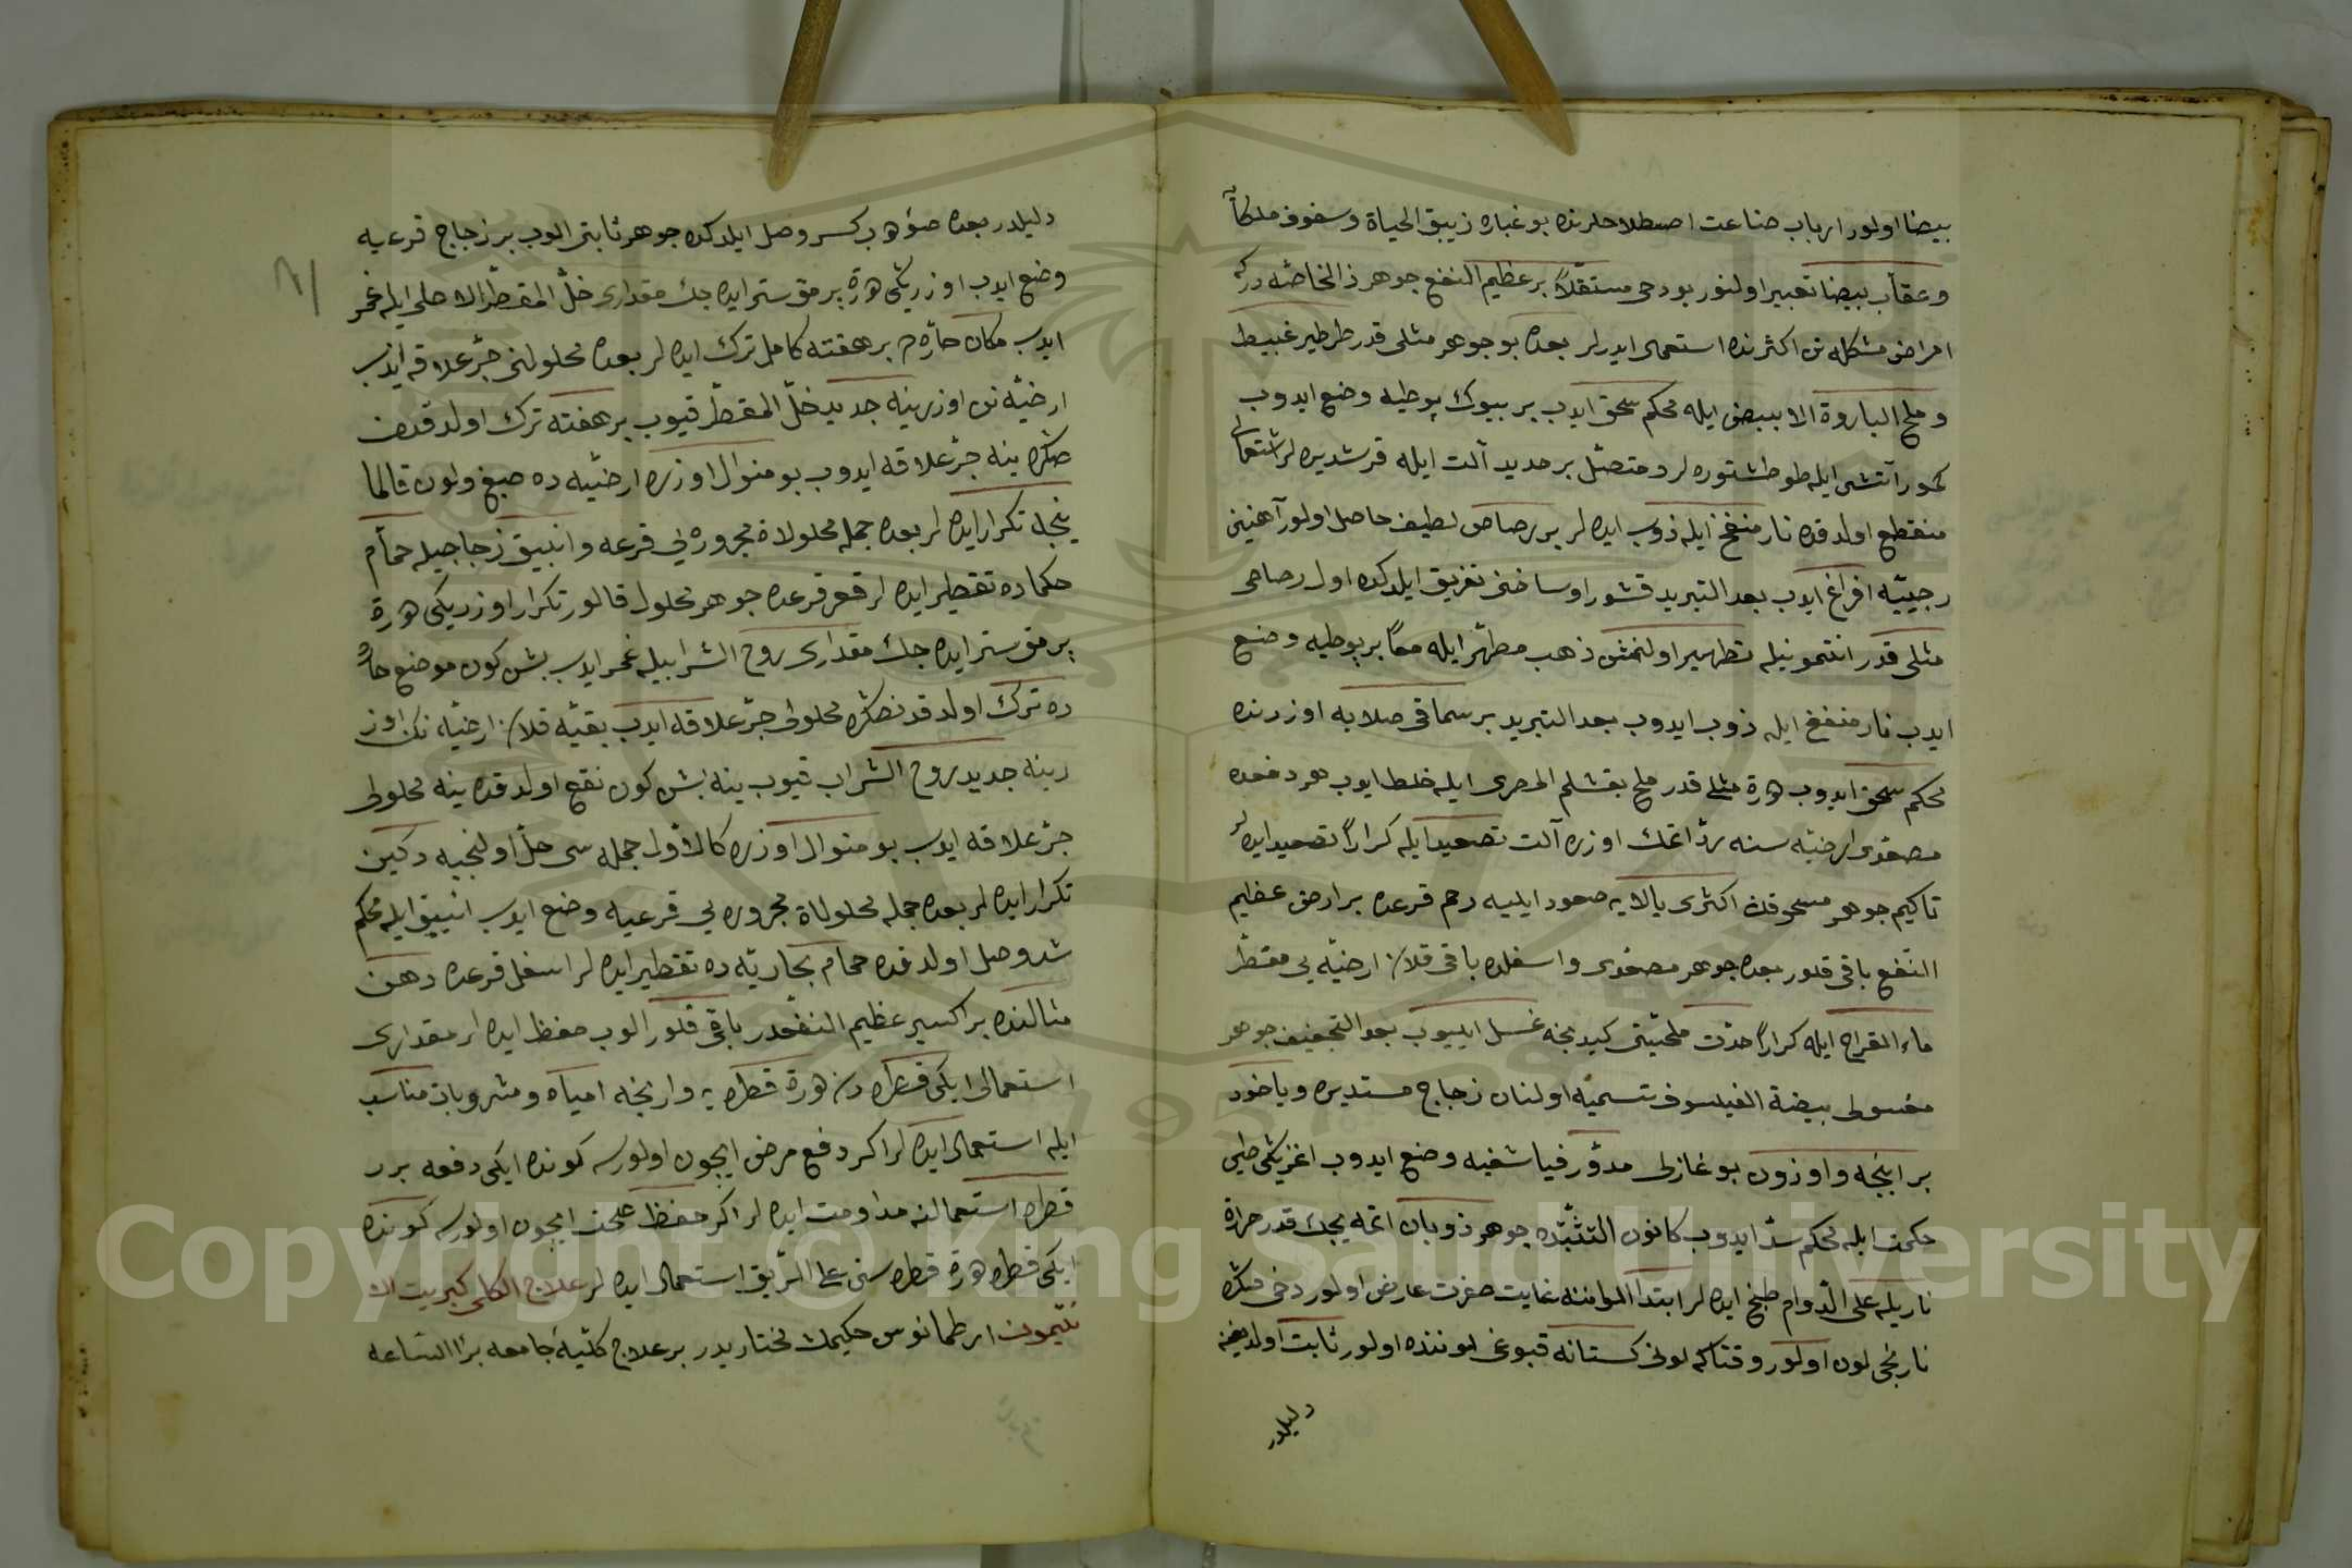 بيضا اولور ارباب صناعت اصطلاحلرنده بو غباره زيبق الحياة وسفوف ملكاً
وعقاب بيضا تعبير اولنور بو دخى مستقلاً بر عظيم النفع جوهر ذالخاصّه دركه
امراض مشكله نن اكثرنده استعمال ايدرلر بعده بو جوهر مثلى قدر طرطير غبيط
وملح البارودة الابيض ايله محكم سحق ايدب بر بيوك پوطيه وضع ايدوب
كمور آتشى ايله طوطشتوره لر و متصل بر حديد آلت ايله قرشديره لر اشتعالى
منقطع اولدقده نار منفخ ايله ذوب ايده لر بر رصاص لطيف حاصل اولور آهنين
رجيّيه افراغ ايدب بعد التبريد قشور اوساخنى تفريق ايلدكده اول رصاصى
مثلى قدر انتمونيله تطهير اولنمش ذهب مطهّر ايله معاً بر پوطيه وضع
ايدب نار منفخ ايله ذوب ايدوب بعد التبريد بر سماقى صلايه اوزرنده
محكم سحق ايدوب وهرة مثلى قدر ملح بقشلم المحرى ايله خلط ايدوب هر دفعه ده
مصعّدى ارضيّه سنه ردّ اتمك اوزره آلت تصعيد ايله كراراً تصعيد ايده لر
تاكيم جوهر مسحوقك اكثرى بالايه صعود ايليه رحم قرعده بر ارض عظيم
النفع باقى قلور بعده جوهر مصعّدى واسفلده باقى قلان ارضيّه يى مقطّر
ماء القراح ايله كراراً حدّت ملحيّتى كيدنجه غسل ايليوب بعد التجفيف جوهر
مغسولى بيضة الفيلسوف تسميه اولنان زجاج مستديره وياخود
بر اينجه واوزون بوغازلى مدوّر فياشغيه وضع ايدوب اغزيكى طين
حكمت ايله محكم سدّ ايدوب كانون التثبّتده جوهر ذوبان اتميه جك قدر حرارة
ناريله على الدّوام طبخ ايده لر ابتدا الوانته غايت صفرت عارض اولور دخى صكره
نارنجى لون اولور وقتاكه لونى كستانه قبوغى لوننده اولور ثابت اولديغنه
دليلدر
دليلدر بعده صوّهب كسر وصل ايلدكده جوهر ثابتى الوب بر زجاج قرعيه
وضع ايدب اوزريكى وهرة برمق ستر ايده جك مقدارى خلّ المقطّر الاصلى ايله غمر
ايدب مكان حارّه ده بر هفته كامل ترك ايده لر بعده محلولنى جرّ علاقه ايدب
ارضيّه نن اوزرينه جديد خلّ المقطّر قيوب بر هفته ترك اولدقدن
صكره ينه جرّ علاقه ايدوب بو منوال اوزره ارضيّه ده صبغ ولون قالمـا
ينجه تكرار ايده لر بعده جمله محلولاة مجروره يى قرعه وانبيق زجاجيله حمّام
حكماده تقطير ايده لر قعر قرعده جوهر محلول قالور تكرار اوزريكى وهرة
برمق ستر ايده جك مقدارى روح الشرابيله غمر ايدب بش كون موضع حارّ
ده ترك اولدقدنصكره محلولى جرّ علاقه ايدب بقيّه قلان ارضيّه نك اوز
رينه جديد روح الشراب قيوب ينه بش كون نقع اولدقده ينه محلولى
جرّ علاقه ايدب بو منوال اوزره كالاوّل جمله سى حلّ اولنجيه دكين
تكرار ايده لر بعده جمله محلولاة مجروره يى قرعيه وضع ايدب انبيق ايله محكم
شد وصل اولدقده حمام بخاريّه ده تقطير ايده لر اسفل قرعده دهن
مثالنده بر اكسير عظيم النفعدر باقى قلور الوب حفظ ايده لر مقدارى
استعمالى ايكى قطره دن وهرة قطره يه وارنجه امياه و مشروبات مناسب
ايله استعمال ايده لر اكر دفع مرض ايچون اولورسه كونده ايكى دفعه برر
قطره استعمالنه مداومت ايده لر اكر حفظ صحت ايچون اولورسه كونده
ايكى قطره وهرة قطره سنى على الرّيق استعمال ايده لر علاج الكلى كبريت الا
نتيمون ارطمانوس حكيمك مختاريدر بر علاج كليّهٔ جامعه برا الساعه
Copyright © King Saud University
1957